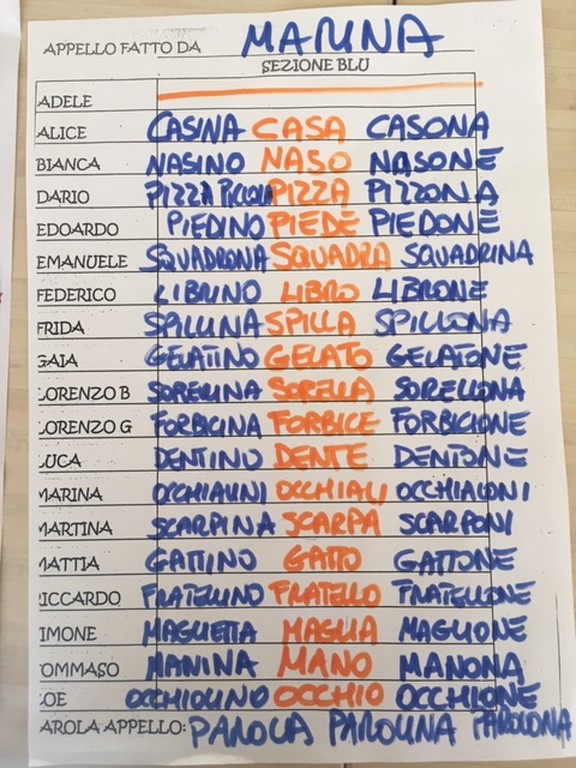 APPELLO FATTO DA MARINA
SEZIONE BLU
ADELE
ALICE CASINA CASA CASONA
BIANCA NASINO NASO NASONE
DARIO PIZZA PICCOLA PIZZA PIZZONA
EDOARDO PIEDINO PIEDE PIEDONE
EMANUELE SQUADRONA SQUADRA SQUADRINA
FEDERICO LIBRINO LIBRO LIBRONE
FRIDA SPILLINA SPILLA SPILLONA
GAIA GELATINO GELATO GELATONE
LORENZO B SORELLINA SORELLA SORELLONA
LORENZO G FORBICINA FORBICE FORBICIONE
LUCA DENTINO DENTE DENTONE
MARINA OCCHIALINI OCCHIALI OCCHIALONI
MARTINA SCARPINA SCARPA SCARPONI
MATTIA GATTINO GATTO GATTONE
RICCARDO FRATELLINO FRATELLO FRATELLONE
IMONE MAGLIETTA MAGLIA MAGLIONE
OMMASO MANINA MANO MANONA
OE OCCHIOLINO OCCHIO OCCHIONE
AROLA APPELLO: PAROLA PAROLINA PAROLONA